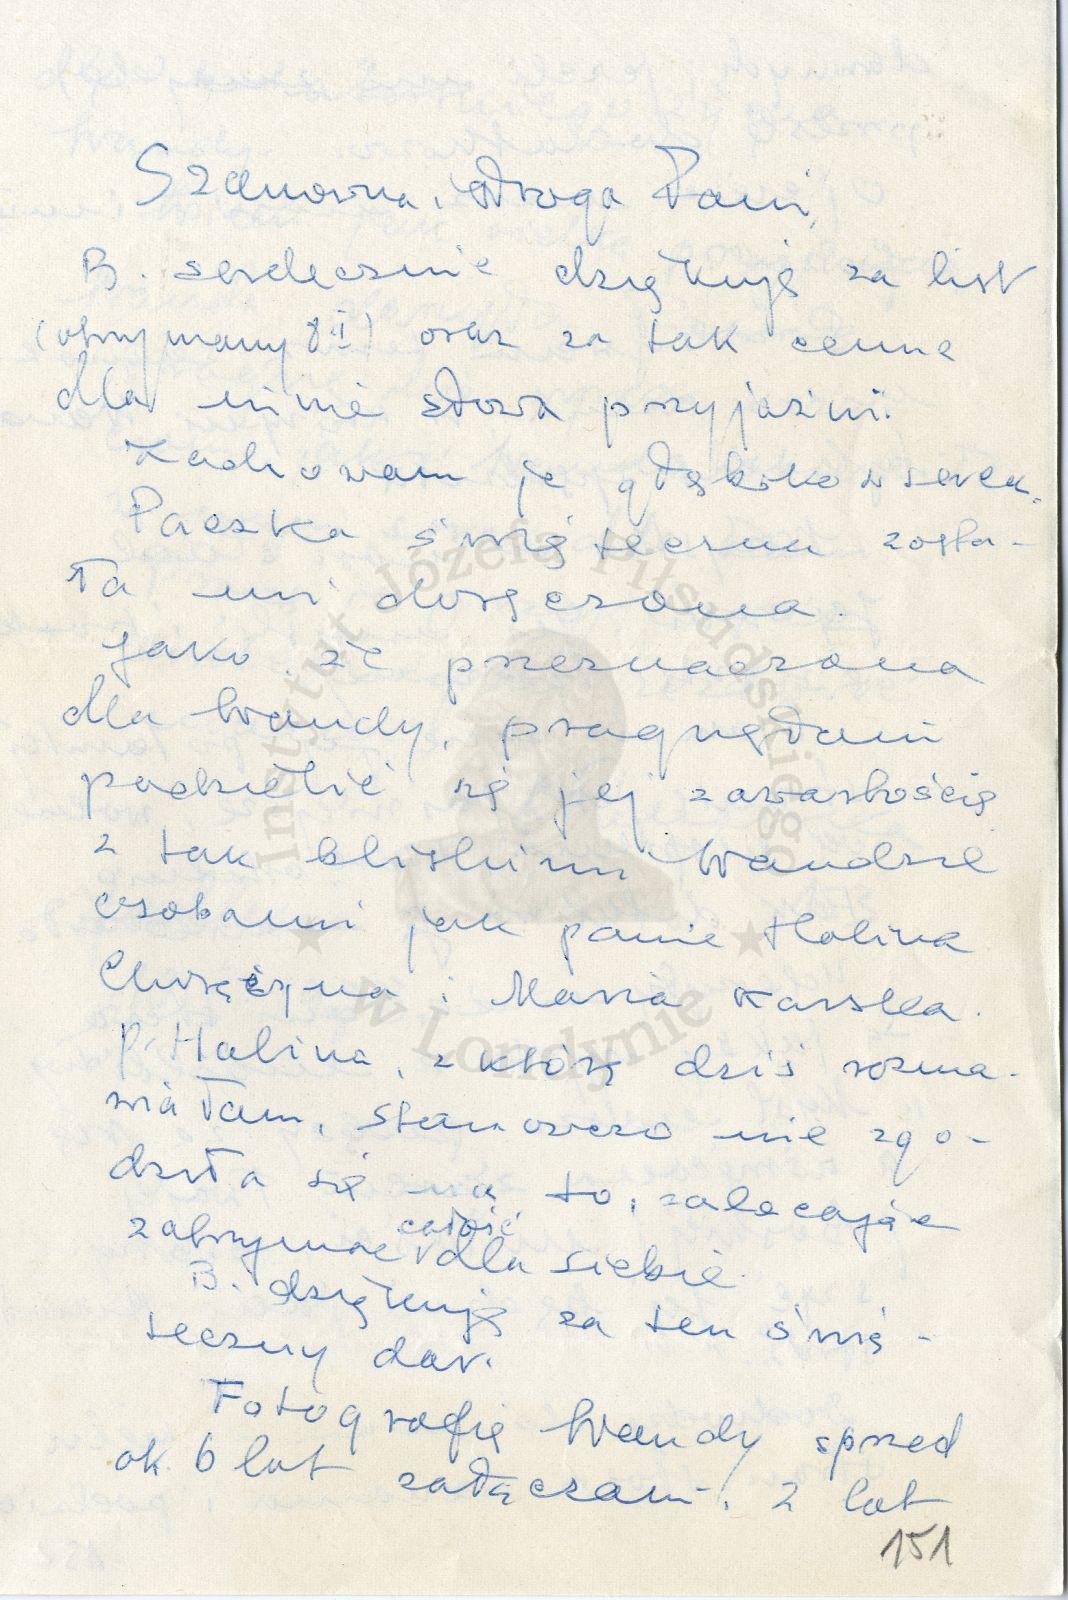 Szanowna, Droga Pani,
B. serdecznie dziękuję za list
(otrzymany 8.I) oraz za tak cenne
dla mnie słowa przyjaźni.
Zachowam je głęboko w sercu.
Paczka świąteczna zosta-
ła mi doręczona.
Jako że przeznaczona
dla Wandy, pragnęłam
podzielić się jej zawartością
z tak bliskimi Wandzie
osobami jak panie Halina
i Maria Karska.
p. Halina, z którą dziś rozma-
wiałam, stanowczo nie zgo-
dziła się na to, zalecając
zatrzymać całość dla siebie.
B. dziękuję za ten świą-
teczny dar.
Fotografię Wandy sprzed
ok. 6 lat załączam. Z lat
151
Instytut Józefa Piłsudskiego
w Londynie